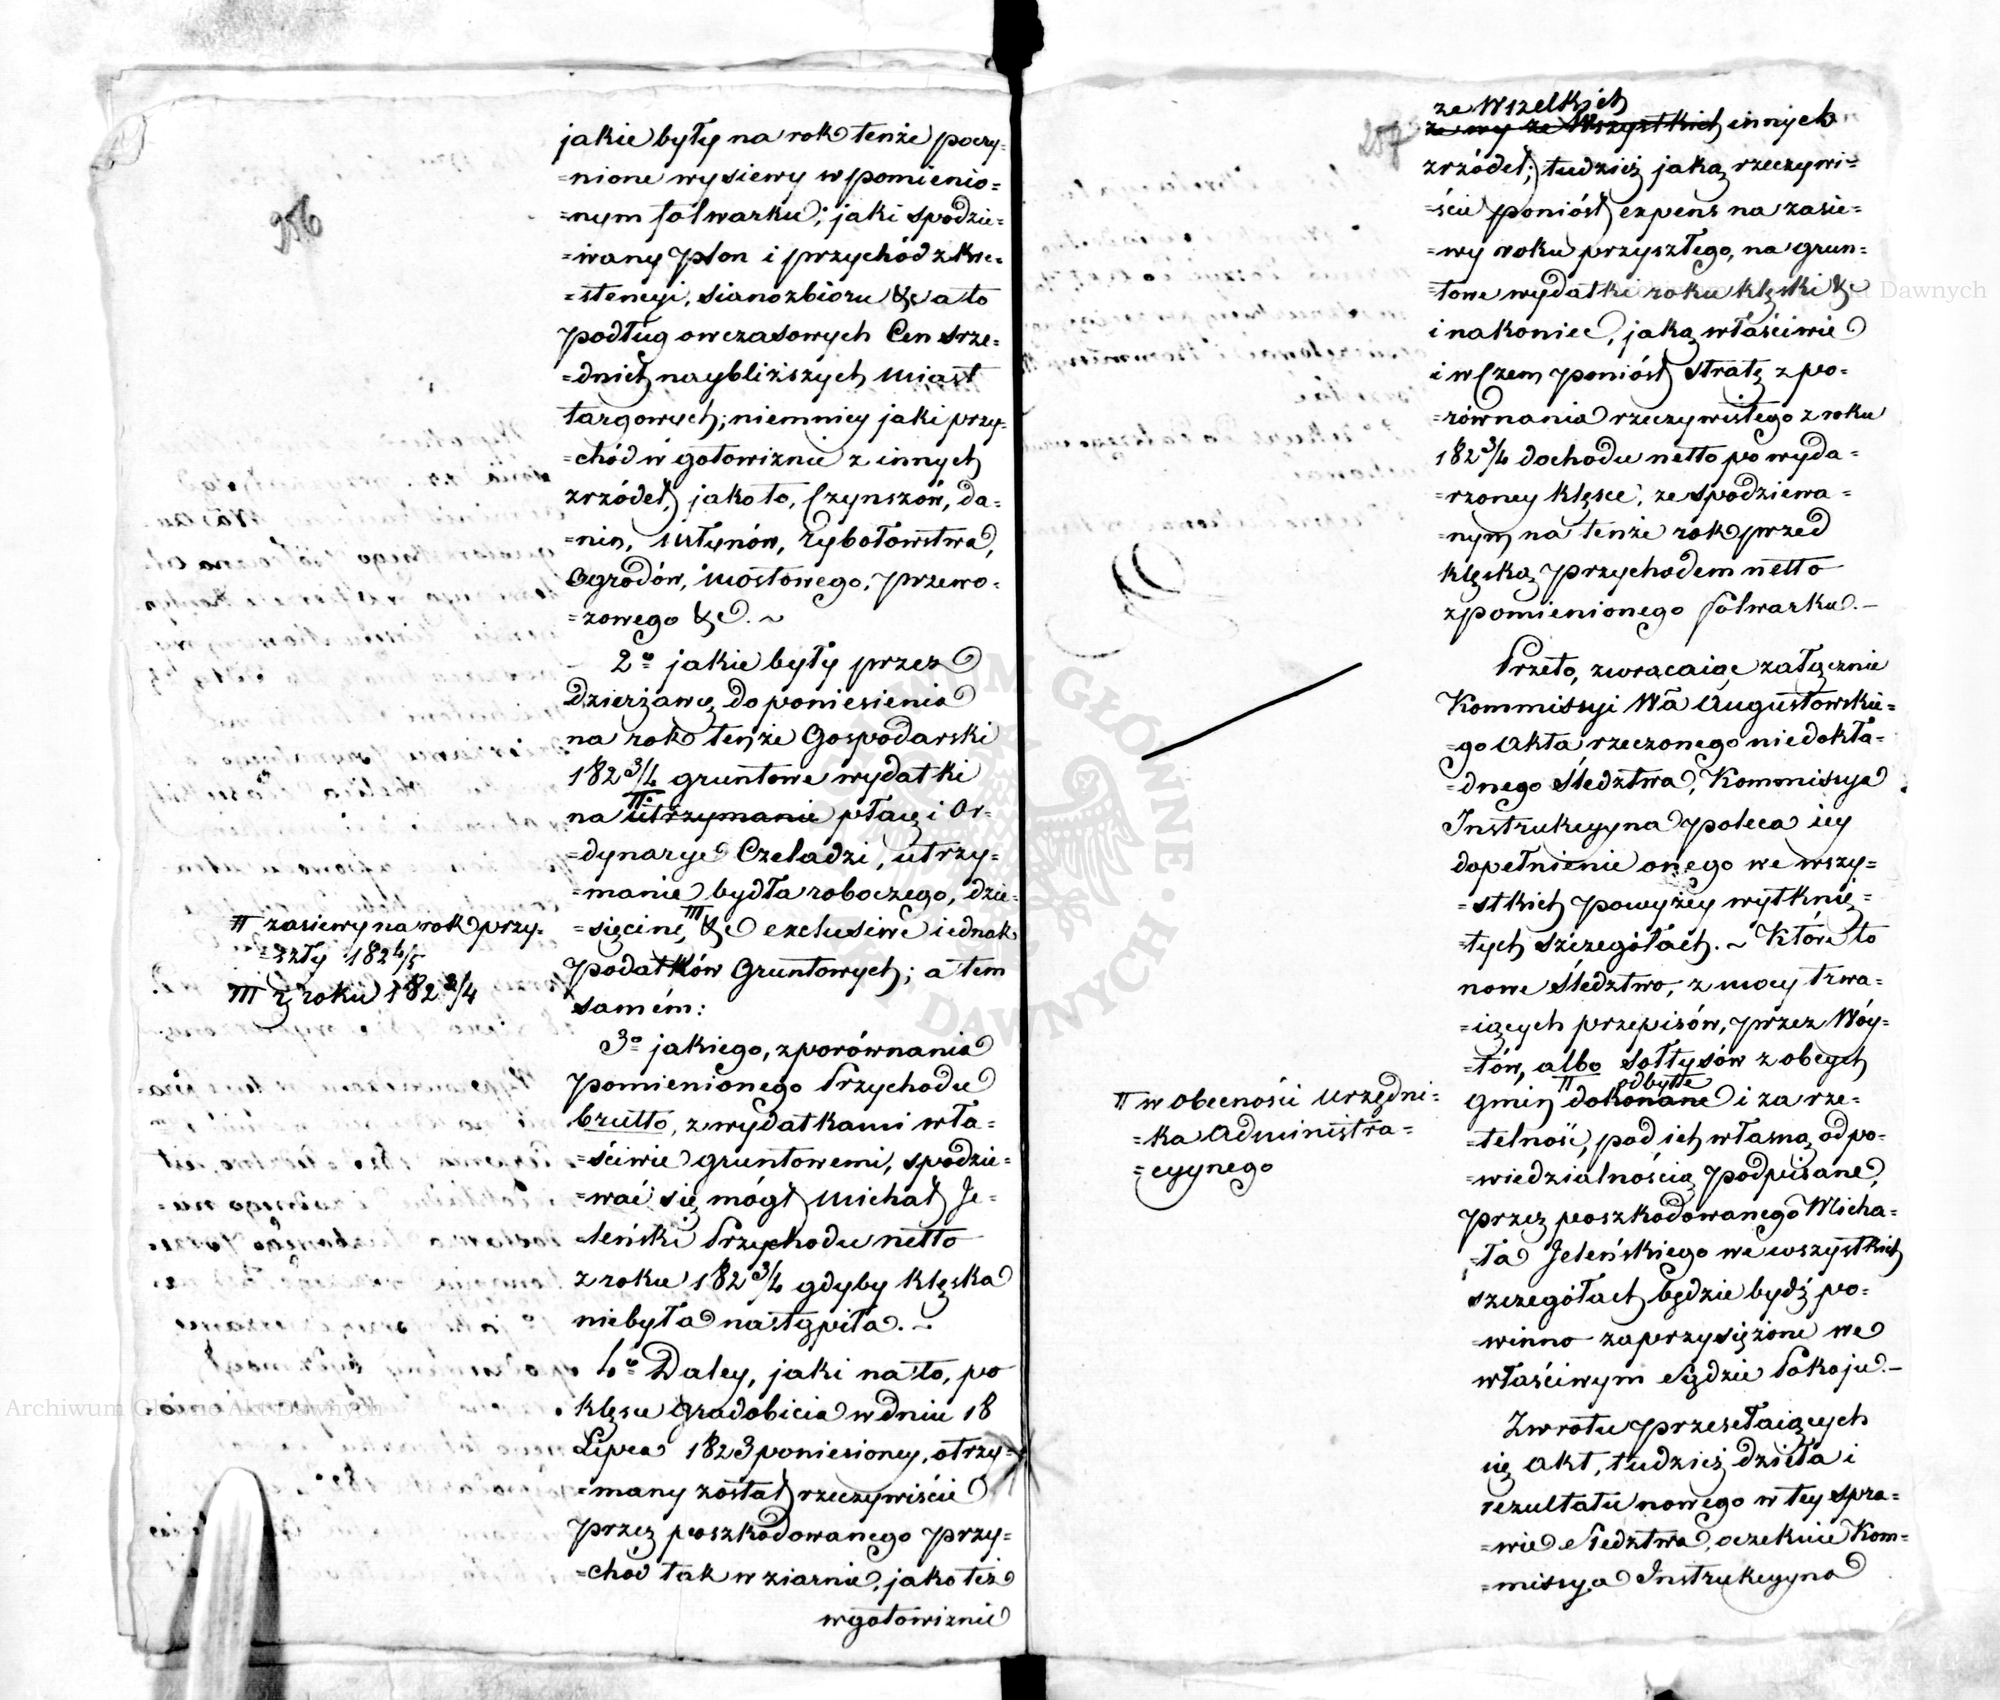 956
jakie były na rok tenże poczy=
=nione wysiewy w pomienio=
=nym folwarku; jaki spodzie=
=wany plon i przychód z kre=
=stencyi, sianozbioru &c a to
podług owczasowych Cen srze=
=dnich naybliższych Miast
targowych; niemniey jaki przy=
=chód w gotowiznie z innych
zrzódeł, jako to, Czynszów, da=
=nin, Młynów, rybołowstwa,
Ogrodów, mostowego, przewo=
=zowego &c. ~
2o jakie były przez
Dzierżawcę do poniesienia
na rok tenże Gospodarski
182 3/4 gruntowe wydatki
na II utrzymanie płacę i Or=
=dynarye Czeladzi, utrzy=
=manie bydła roboczego, dzie=
=sięcinę, III &c exclusive iednak
podatków Gruntowych; a tem
samém:
II zasiewy na rok przy=
=szły 182 4/5
III z roku 182 3/4
3o jakiego, z porównania
pomienionego Przychodu
brutto, z wydatkami wła=
=ściwie gruntowemi, spodzie=
=wać się mógł Michał Je=
=leński Przychodu netto
z roku 182 3/4 gdyby klęska
niebyła nastąpiła. ~
4o Daley, jaki na to, po
klęsce gradobicia w dniu 18
Lipca 1823 poniesioney, otrzy=
=many został rzeczywiście
przez poszkodowanego przy=
=chod tak w ziarnie, jako też
w gotowiznie
257
ze Wszelkich
ze wy ze Wszystkich innych
zrzódeł; tudzież jaką rzeczywi=
=ście poniósł expens na zasie=
=wy roku przyszłego, na grun=
=towe wydatki roku klęski &c
i nakoniec, jaką właściwie
i w Czem poniósł stratę z po=
=równania rzeczywistego z roku
182 3/4 dochodu netto po wyda=
=rzoney klęsce, ze spodziewa=
=nym na tenże rok przed
klęską przychodem netto
z pomienionego folwarku. –
Przeto, zwracaiąc załącznie
Kommissyi Wa Augustowskie=
=go Akta rzeczonego niedokła=
=dnego śledztwa, Kommissya
Instrukcyyna poleca iey
dopełnienie onego we wszy=
=stkich powyżey wytknię=
=tych szczegółach. ~ Które to
nowe śledztwo, z mocy trwa=
=iących przepisów, przez Wóy=
=tów, albo sołtysów z obcych
odbyłe
gmin II dokonane i za rze=
=telność, pod ich własną odpo=
=wiedzialnością podpisane,
przez poszkodowanego Micha=
=ła Jeleńskiego we wszystkich
szczegółach będzie bydź po=
=winno zaprzysiężone we
właściwym Sądzie Pokoju. –
II w obecności Urzędni=
=ka Administra=
=cyynego
Zwrotu przesełaiących
się akt, tudzież dzieła i
rezultatu nowego w tey spra=
=wie śledztwa, oczekuie Kom=
=missya Instrukcyyna
Archiwum Główne Akt Dawnych
ARCHIWUM GŁÓWNE AKT DAWNYCH